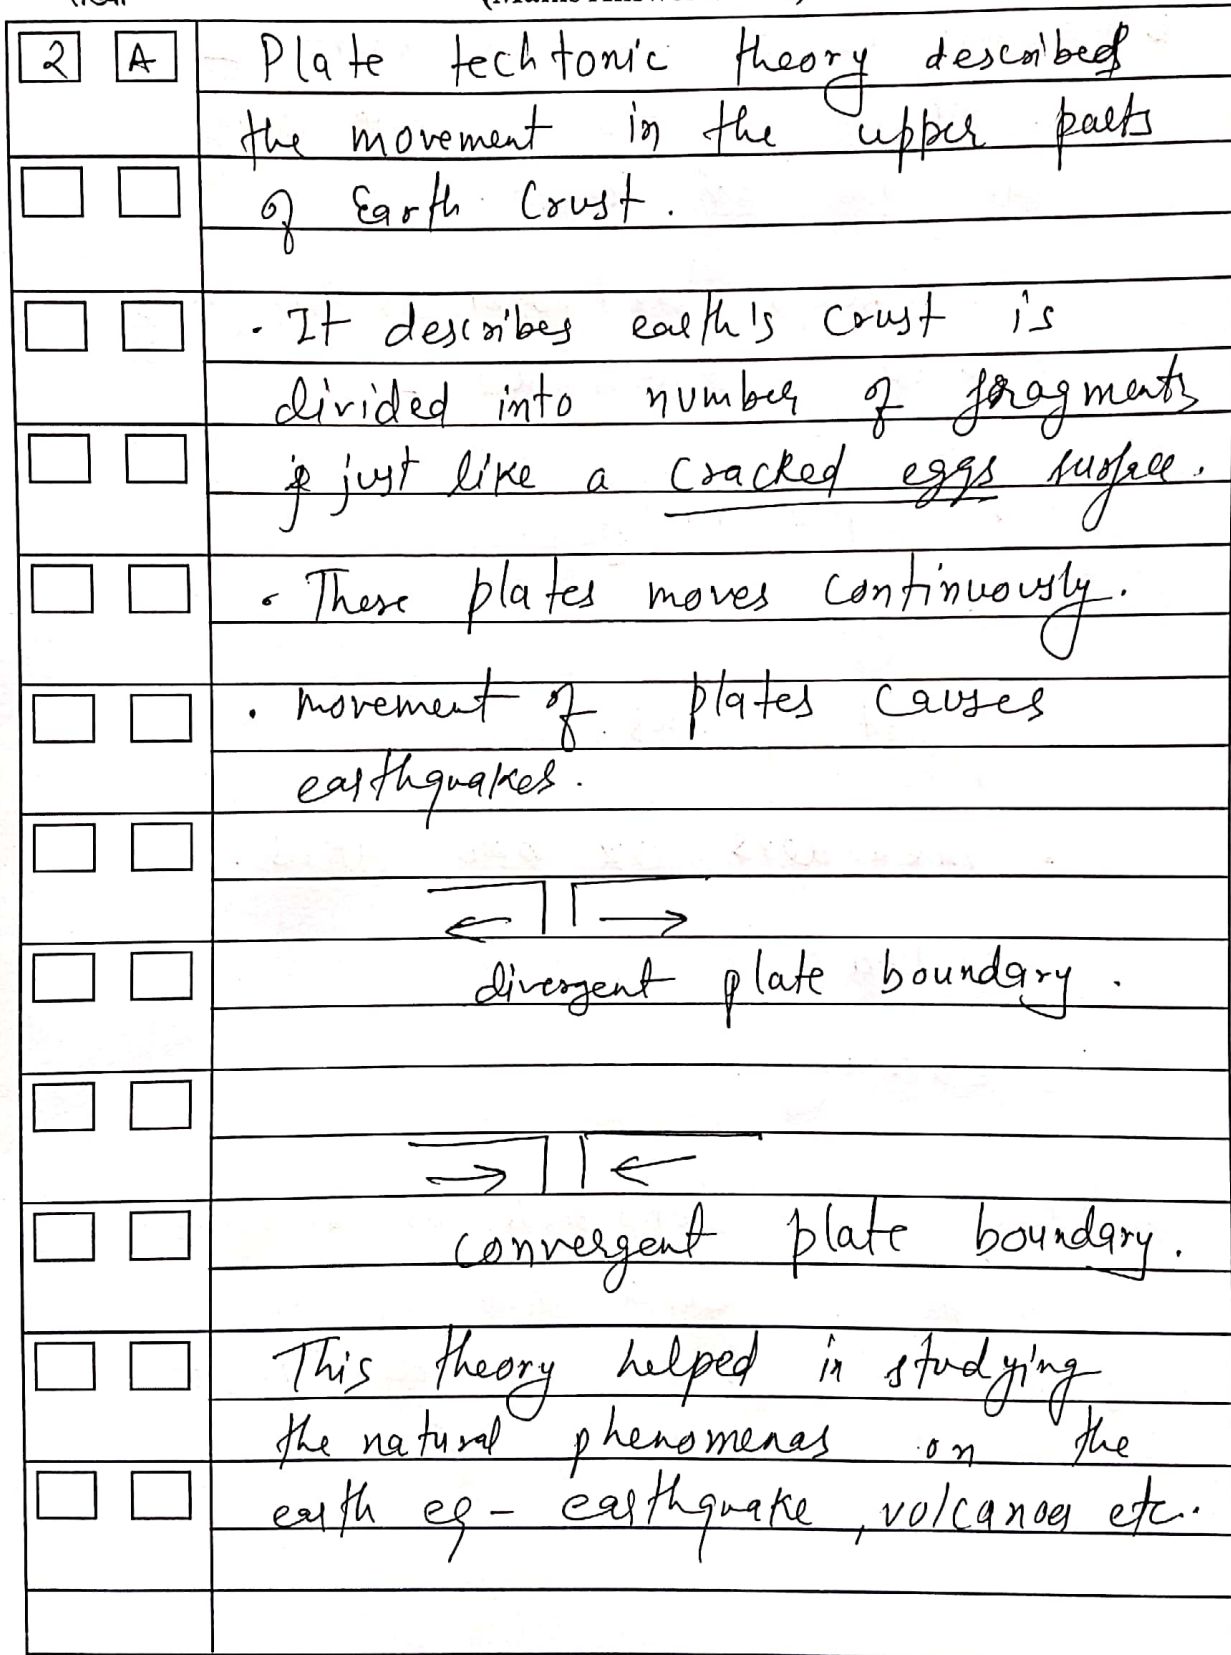 2 A Plate techtonic theory describes
the movement in the upper parts
of Earth Crust.
. It describes earth's crust is
divided into number of fragments
just like a cracked eggs surface.
. These plates moves continuously.
. movement of plates causes
earthquakes.
divergent plate boundary.
convergent plate boundary.
This theory helped in studying
the natural phenomenas on the
earth eg - earthquake, volcanoes etc.